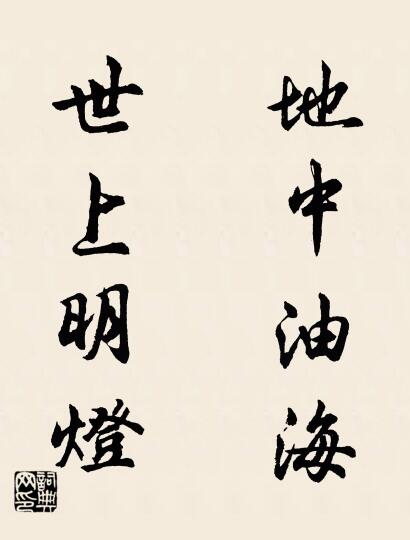 地中油海
世上明燈
詞典网印